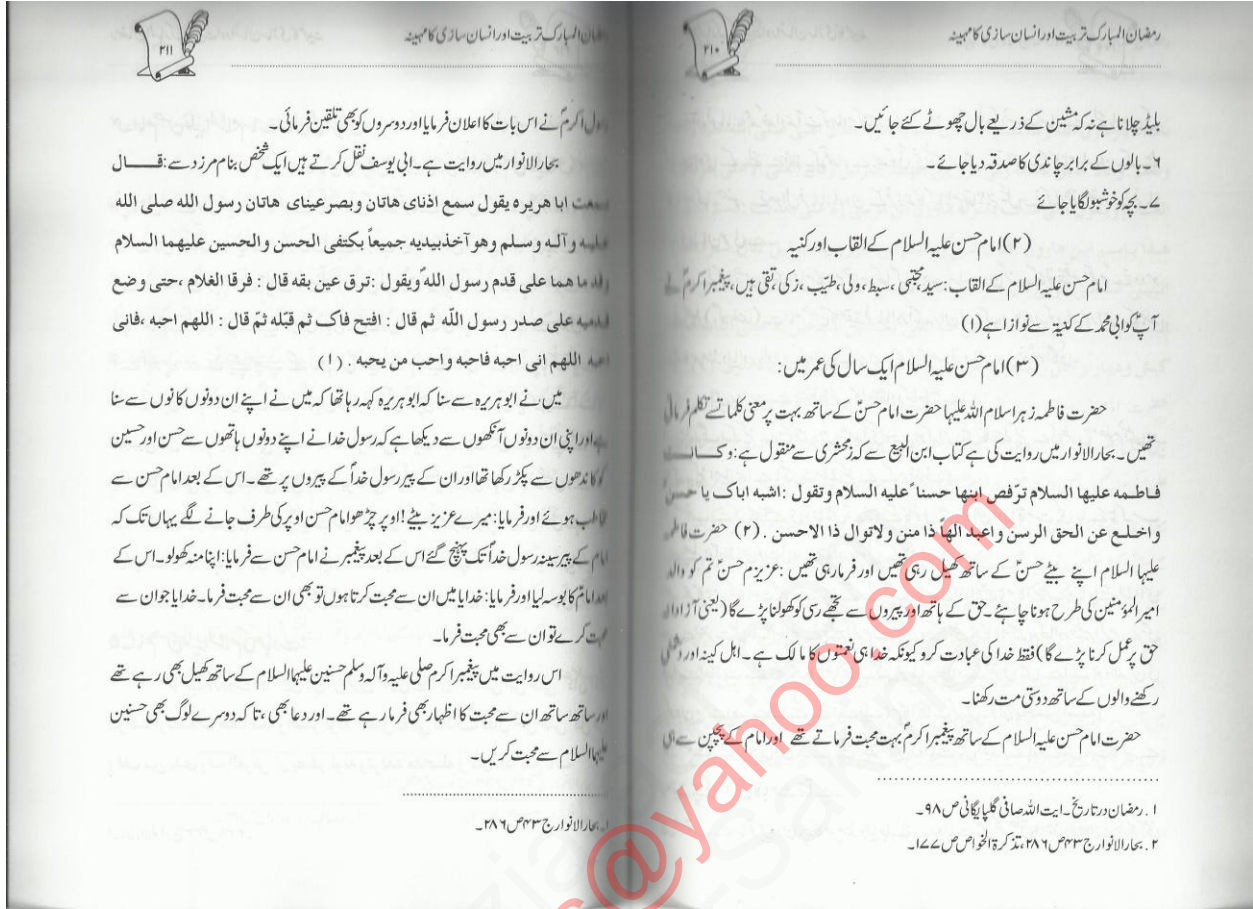 رمضان المبارک تربیت اور انسان سازی کا مہینہ
۲۱۰
بلیڈ چلانا ہے نہ کہ مشین کے ذریعے بال چھوٹے کئے جائیں۔
۶۔ بالوں کے برابر چاندی کا صدقہ دیا جائے۔
۷۔ بچہ کو خوشبو لگایا جائے
(۲) امام حسن علیہ السلام کے القاب اور کنیہ
امام حسن علیہ السلام کے القاب: سید، مجتبیٰ، سبط، ولی، طیّب، زکی، تقی ہیں، پیغمبر اکرمؐ نے
آپؑ کو ابی محمد کے کنیۃ سے نوازا ہے (۱)
(۳) امام حسن علیہ السلام ایک سال کی عمر میں:
حضرت فاطمہ زہرا سلام اللہ علیہا حضرت امام حسنؑ کے ساتھ بہت پر معنی کلمات سے تکلم فرماتی
تھیں۔ بحار الانوار میں روایت کی ہے کتاب ابن البیع سے کہ زمحشری سے منقول ہے: و کانت
فاطمه عليها السلام ترّفص ابنها حسناً عليه السلام وتقول : اشبه اباک یا حسن
و اخلع عن الحق الرسن و اعبد الهاً ذا منن ولا توال ذا الاحسن . (۲) حضرت فاطمہ
علیہا السلام اپنے بیٹے حسنؑ کے ساتھ کھیل رہی تھیں اور فرما رہی تھیں : عزیزم حسنؑ تم کو والد
امیر المؤمنین کی طرح ہونا چاہئے۔ حق کے ہاتھ اور پیروں سے تجھے رسی کو کھولنا پڑے گا (یعنی آزادانہ
حق پر عمل کرنا پڑے گا) فقط خدا کی عبادت کرو کیونکہ خدا ہی نعمتوں کا مالک ہے۔ اہل کینہ اور دشمنی
رکھنے والوں کے ساتھ دوستی مت رکھنا۔
حضرت امام حسن علیہ السلام کے ساتھ پیغمبر اکرمؐ بہت محبت فرماتے تھے اور امام کے بچپن سے ہی
۱. رمضان در تاریخ۔ ایت اللہ صافی گلپایگانی ص ۹۸۔
۲. بحار الانوار ج ۴۳ ص ۲۸۶، تذکرۃ الخواص ص ۱۷۷۔
رمضان المبارک تربیت اور انسان سازی کا مہینہ
۲۱۱
رسول اکرمؐ نے اس بات کا اعلان فرمایا اور دوسروں کو بھی تلقین فرمائی۔
بحار الانوار میں روایت ہے۔ ابی یوسف نقل کرتے ہیں ایک شخص بنام مرزد سے: قال
سمعت ابا هریره یقول سمع اذنای هاتان وبصر عینای هاتان رسول الله صلی الله
علیه و آله وسلم وهو آخذ بیدیه جمیعاً بکتفی الحسن والحسین علیهما السلام
وقد ماهما علی قدم رسول اللهؐ ویقول :ترق عین بقه قال : فرقا الغلام ،حتی وضع
قدمیه علی صدر رسول اللّه ثم قال : افتح فاک ثم قبّله ثمّ قال : اللهم احبه ،فانی
احبه اللهم انی احبه فاحبه واحب من یحبه . (۱)
میں نے ابو ہریرہ سے سنا کہ ابو ہریرہ کہہ رہا تھا کہ میں نے اپنے ان دونوں کانوں سے سنا
ہے اور اپنی ان دونوں آنکھوں سے دیکھا ہے کہ رسول خدا نے اپنے دونوں ہاتھوں سے حسن اور حسین
کو کاندھوں سے پکڑ رکھا تھا اور ان کے پیر رسول خداؐ کے پیروں پر تھے۔ اس کے بعد امام حسن سے
مخاطب ہوئے اور فرمایا: میرے عزیز بیٹے! اوپر چڑھو امام حسن اوپر کی طرف جانے لگے یہاں تک کہ
امام کے پیر سینہ رسول خداؐ تک پہنچ گئے اس کے بعد پیغمبر نے امام حسن سے فرمایا: اپنا منہ کھولو۔ اس کے
بعد امامؑ کا بوسہ لیا اور فرمایا: خدایا میں ان سے محبت کرتا ہوں تو بھی ان سے محبت فرما۔ خدایا جو ان سے
محبت کرے تو ان سے بھی محبت فرما۔
اس روایت میں پیغمبر اکرم صلی علیہ و آلہ وسلم حسنین علیہما السلام کے ساتھ کھیل بھی رہے تھے
اور ساتھ ساتھ ان سے محبت کا اظہار بھی فرما رہے تھے۔ اور دعا بھی، تا کہ دوسرے لوگ بھی حسنین
علیہما السلام سے محبت کریں۔
۱۔ بحار الانوار ج ۴۳ ص ۲۸۶۔
s@yahoo.com